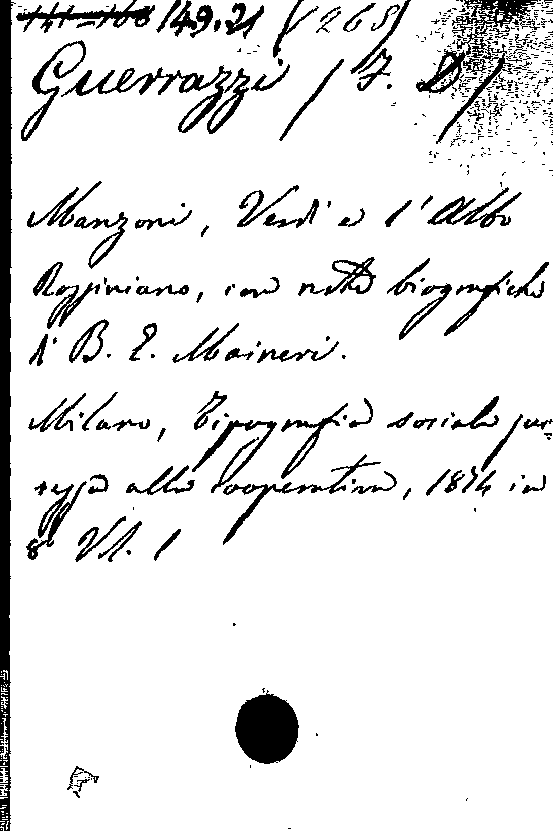 149.21 (268)
Guerrazzi (F. D)
Manzoni, Verdi e l'Albo
Rossiniano, con note biografiche
di B. E. Maineri.
Milano, Tipografia sociale
alla cooperativa, 1874 in
8° Vol. 1